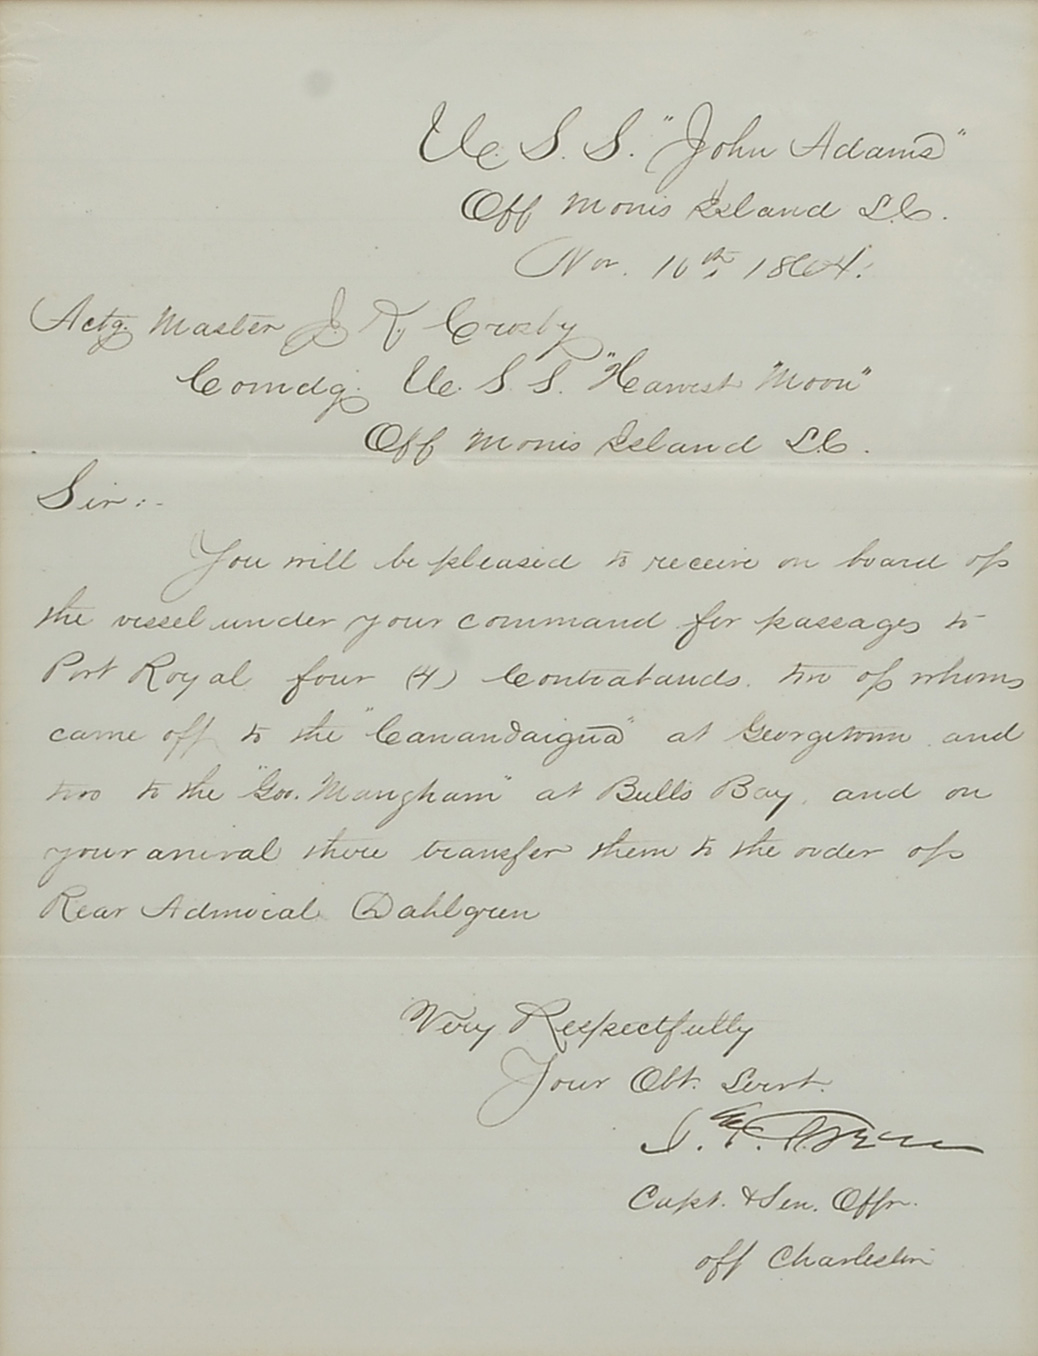 U. S. S. "John Adams"
Off Morris Island S.C.
Nov. 16th 1864.
Actg. Master J. K. Crosby
Comdg. U. S. S. "Harvest Moon"
Off Morris Island S.C.
Sir:-
You will be pleased to receive on board of
the vessel under your command for passages to
Port Royal four (4) Contrabands. two of whom
came off to the "Canandaigua" at Georgetown and
two to the "Gov. Mangham" at Bulls Bay, and on
your arrival there transfer them to the order of
Rear Admiral Dahlgren
Very Respectfully
Your Obt. Servt.
Capt. & Sen. Offr.
off Charleston